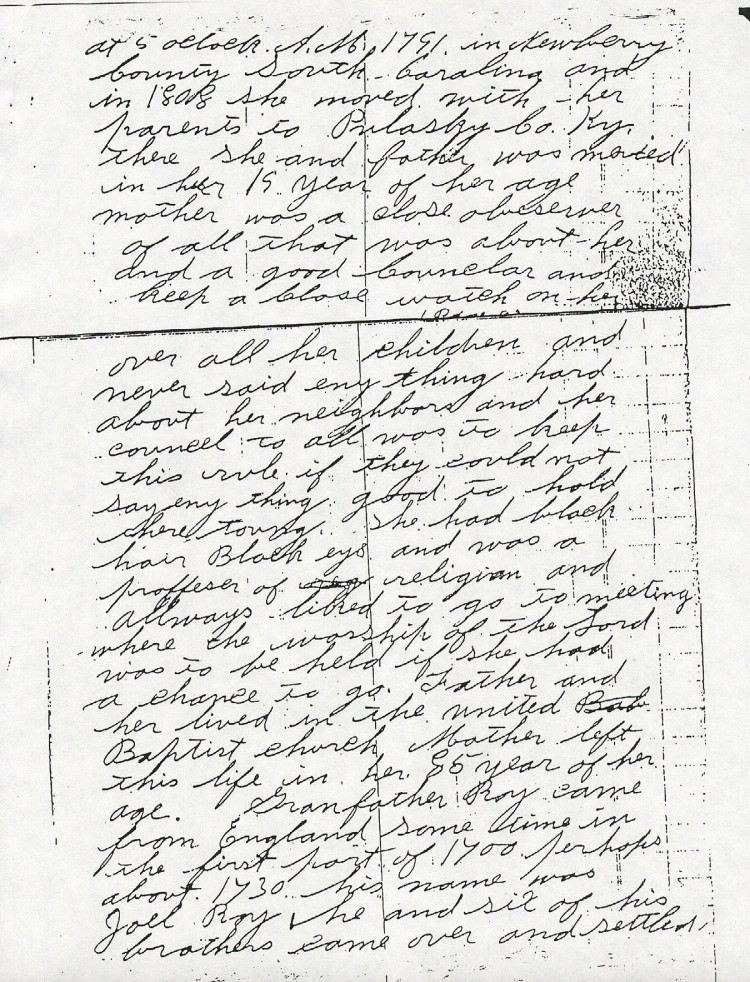 at 5 oclock. A.M. 1791. in Newberry
County South Caralina and
in 1808 she moved with her
parents to Pulasky Co. Ky.
there she and father was maried
in her 19 year of her age
mother was a close observer
of all that was about her
and a good Counclar and
keep a close watch on her
over all her children and
never said eny thing hard
about her neighbors and her
councel to all was to keep
this rule if they could not
say eny thing good to hold
there toung. She had black
hair Black eys and was a
proffeser of religian and
allways liked to go to meeting
where the worship of the Lord
was to be held if she had
a chance to go. Father and
her lived in the united Bab
Baptist church Mother left
this life in her 85 year of her
age. Granfather Roy came
from England some time in
the first part of 1700 perhaps
about 1730 his name was
Joel Roy, he and six of his
brothers came over and settled